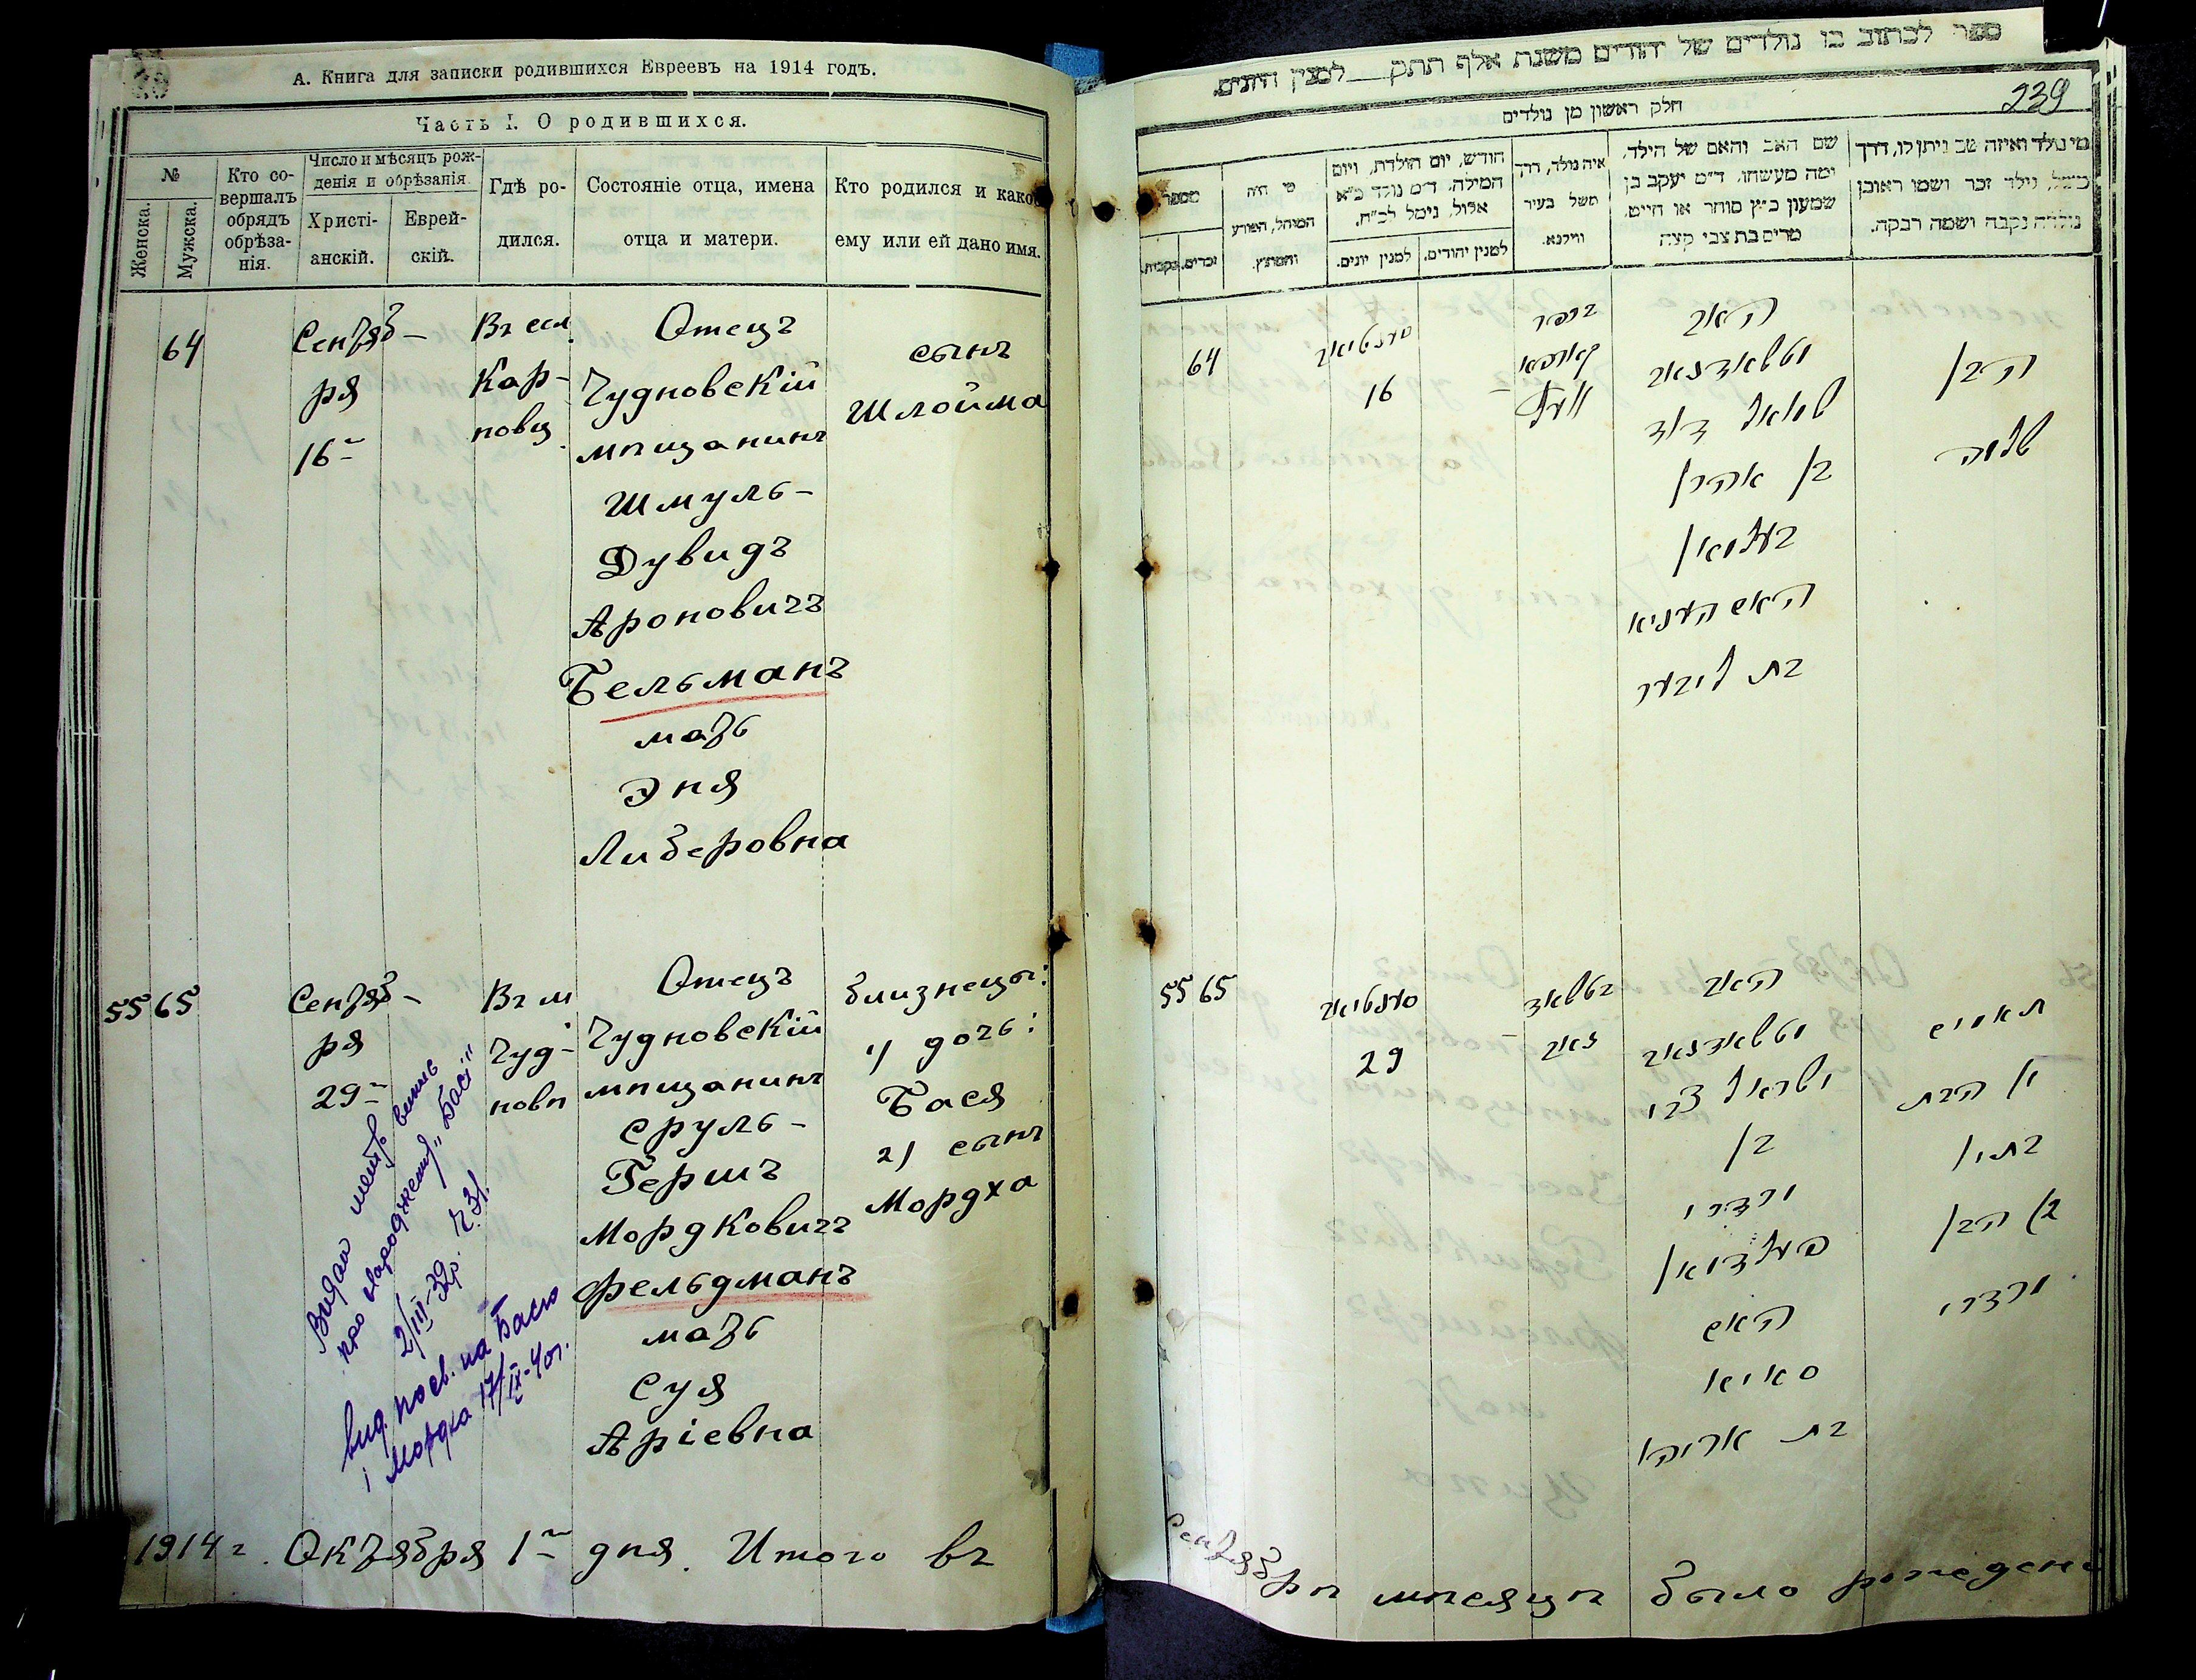 А. Книга для записки родившихся Евреевъ на 1914 годъ.
Часть I. О родившихся.
№
Женска.
Мужска.
Кто со-
вершалъ
обрядъ
обрѣза-
нія.
Число и мѣсяцъ рож-
денія и обрѣзанія
Христі-
анскій.
Еврей-
скій.
Гдѣ ро-
дился.
Состояніе отца, имена
отца и матери.
Кто родился и какое
ему или ей дано имя.
64
Сентяб-
ря
16
Въ сел.
Кар-
повц
Отецъ
Чудновскій
мѣщанинъ
Шмуль-
Дувидъ
Ароновичъ
Бельманъ
мать
Эня
Либеровна
сынъ
Шлойма
55 65
Сентяб-
ря
29
Въ м.
Чуд-
новѣ
Отецъ
Чудновскій
мѣщанинъ
Сруль-
Гершъ
Мордковичъ
Фельдманъ
мать
Суя
Аріевна
близнецы:
1) дочь:
Бася
2) сынъ
Мордха
Видан метр. випис
про народження „Басі"
2/III-39р. Ч.31.
вид. посв. на Басю
і Мордха 17/IX-40г.
1914 г. Октября 1 дня. Итого въ
ספר לכתוב בו נולדים של יהודים משנת אלף תתק למנין היונים.
239
חלק ראשון מן נולדים
מספר
זכרים.
נקבות.
מי היה
המוהל, הפורע
והמוצץ.
חודש, יום הולדת, ויום
המילה, ד״מ נולד כ״א
אלול, נימל לכ״ח.
למנין יונים.
למנין יהודים.
איה נולד, דרך
משל בעיר
ווילנא.
שם האב והאם של הילד,
ומה מעשהו, ד״מ יעקב בן
שמעון כ״ץ סוחר או חייט,
מרים בת צבי קצה
מי נולד ואיזה שם ניתן לו, דרך
משל, נולד זכר ושמו ראובן
נולדה נקבה ושמה רבקה.
64
16
בכפר
האב
שמואל דוד
בן אהרן
בעלמאן
בת ליבער
הבן
שלמה
55 65
29
האב
ישראל צבי
בן
מרדכי
פעלדמאן
האם
סאיא
בת אריה
תאומים
1) הבת
2) הבן
מרדכי
сентябрѣ мѣсяцѣ было рождено